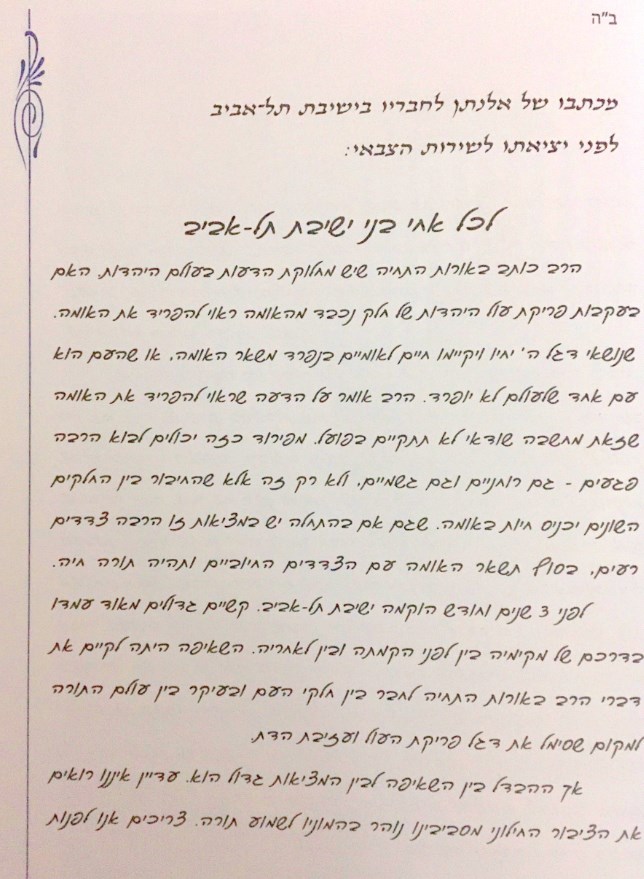 ב"ה
מכתבו של אלנתן לחבריו בישיבת תל-אביב
לפני יציאתו לשירות הצבאי:
לכל אחי בני ישיבת תל-אביב
הרב כותב באורות התחיה שיש מחלוקת הדעות בעולם היהדות. האם
בעקבות פריקת עול היהדות של חלק נכבד מהאומה ראוי להפריד את האומה.
שנושאי דגל ה' יחיו ויקיימו חיים לאומיים בנפרד משאר האומה, או שהעם הוא
עם אחד שלעולם לא יופרד. הרב אומר על הדעה שראוי להפריד את האומה
שזאת מחשבה שודאי לא תתקיים בפועל. מפירוד כזה יכולים לבוא הרבה
פגעים - גם רוחניים וגם גשמיים, ולא רק זה אלא שהחיבור בין החלקים
השונים יכניס חיות באומה. שגם אם בהתחלה יש במציאות זו הרבה צדדים
רעים, בסוף תשאר האומה עם הצדדים החיוביים ותהיה תורה חיה.
לפני 3 שנים וחודש הוקמה ישיבת תל-אביב. קשיים גדולים מאוד עמדו
בדרכם של מקימיה בין לפני הקמתה ובין לאחריה. השאיפה היתה לקיים את
דברי הרב באורות התחיה לחבר בין חלקי העם ובעיקר בין עולם התורה
למקום שסימל את דגל פריקת העול ועזיבת הדת.
אך ההבדל בין השאיפה לבין המציאות גדול הוא. עדיין איננו רואים
את הציבור החילוני מסביבינו נוהר בהמוניו לשמוע תורה. צריכים אנו לפנות